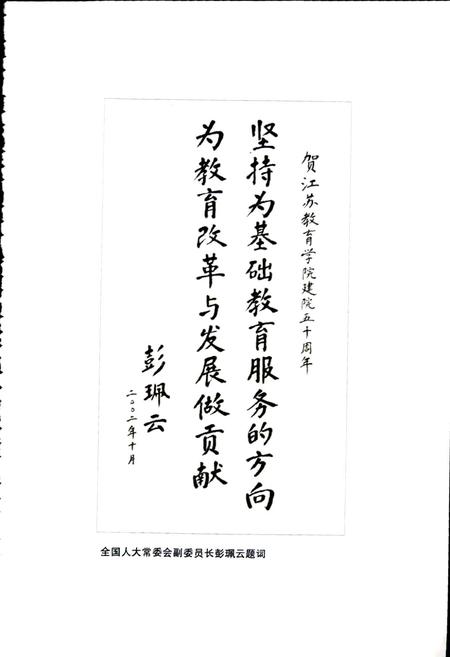 贺江苏教育学院建院五十周年
坚持为基础教育服务的方向
为教育改革与发展做贡献
彭珮云
二〇〇二年十月
全国人大常委会副委员长彭珮云题词